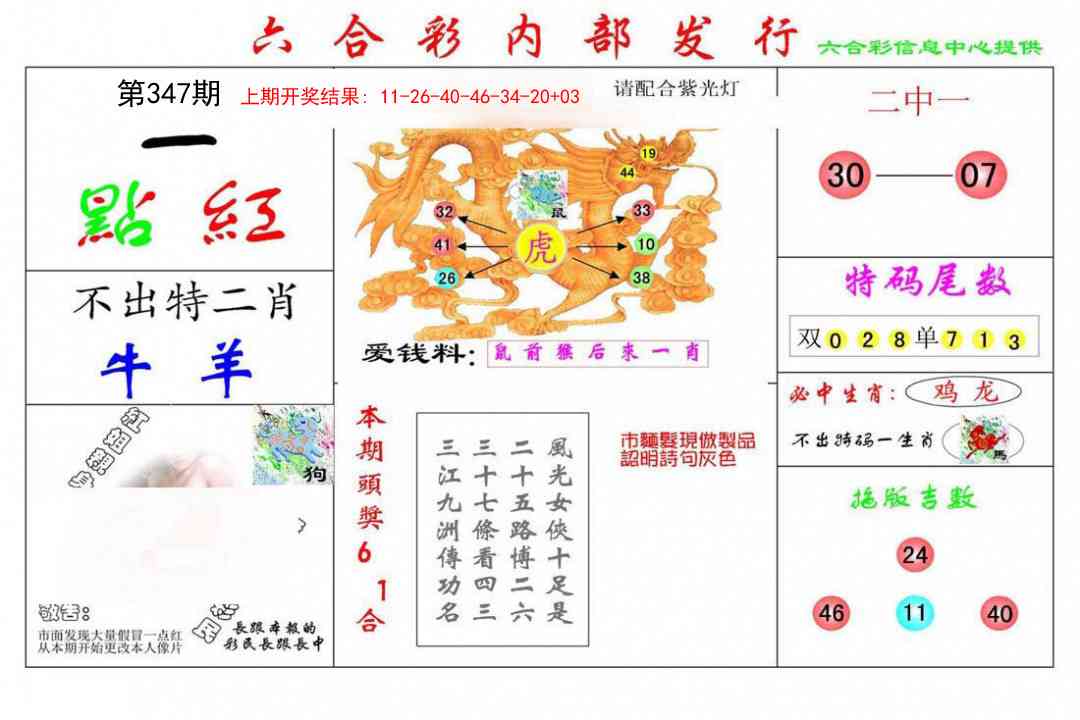 六合彩内部发行
六合彩信息中心提供
第347期
上期开奖结果: 11-26-40-46-34-20+03
请配合紫光灯
一
點紅
不出特二肖
牛 羊
狗
敬告:
市面发现大量假冒一点红
从本期开始更改本人像片
長跟本報的
彩民長跟長中
19
44
鼠
32
33
41
虎
10
26
38
爱钱料:
鼠前猴后来一肖
本期頭獎6 1合
風光女俠十足是
二十五路博二六
三十七條看四三
三江九洲傳功名
市麵髮現倣製品
認明詩句灰色
二中一
30
07
特码尾数
双 0 2 8 单 7 1 3
必中生肖: 鸡 龙
不出特码一生肖
馬
拖版吉数
24
46
11
40